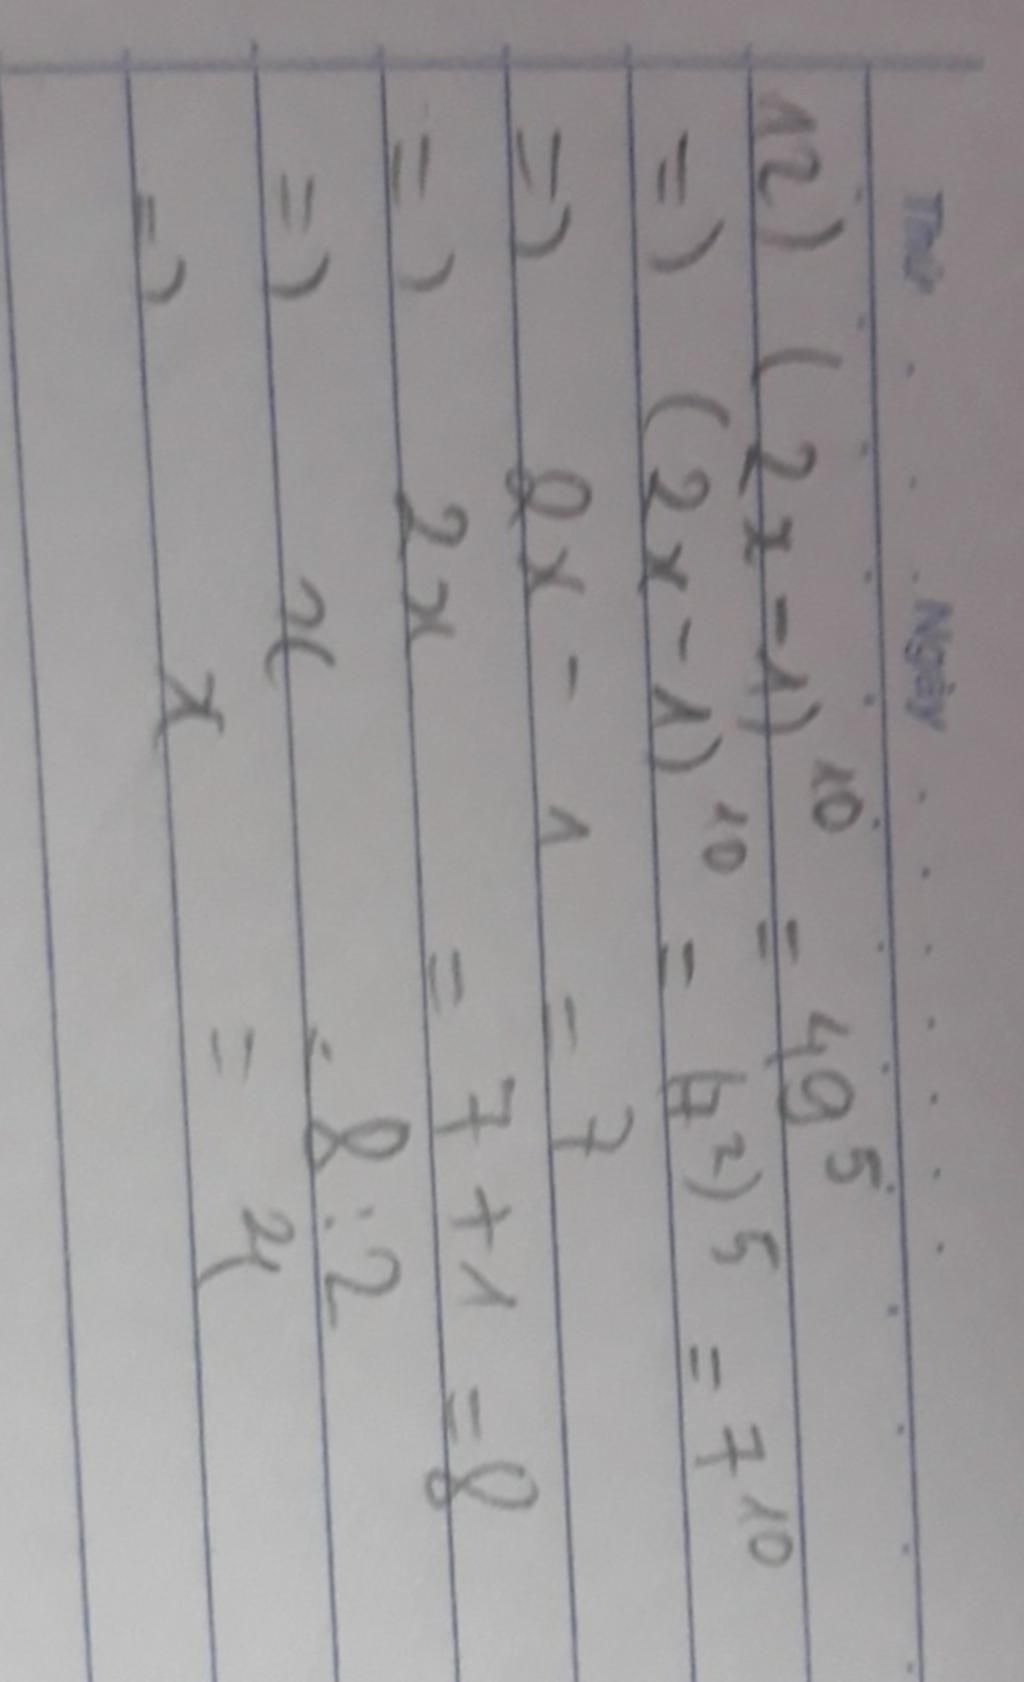 Thứ . . . . Ngày . . . . . . . .
12) (2x-1)¹⁰ = 49⁵
=) (2x-1)¹⁰ = (7²)⁵ = 7¹⁰
=) 2x - 1 = 7
=) 2x = 7 + 1 = 8
=) x = 8 : 2
=) x = 4